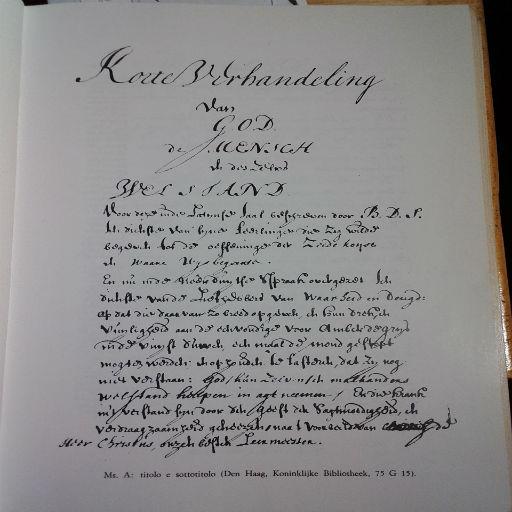 Korte Verhandeling
van
GOD
de MENSCH
en deszelvs
WELSTAND
Voor deze in de Latynse Taal beschreven door B. D. S.
ten dienste van syne Leerlingen die zig wilde
begeven tot de oeffeninge der Zeede konst
en Waare Wysbegeerte.
En nu in de Neerduytse Spraak overgezet ten
dienste van de Liefhebbers van Waarheid en Deugd:
op dat die daar van zo breed opgeven, en hun drek en
vuyligheid aan de eenvoudige voor Amber de grys
in de vuyst duwen, een maal de mond gestopt
mogte werden: en op houden te lasteren, dat zy nog
niet verstaan: God, hun zelven, en malkanders
welstand helpen in agt neemen,
En die krank
in 't verstand zyn door den geest der Zagtmoedigheid, en
verdraagzaamheid geneezen, naa 't Voorbeeld van de
Heer Christus, onzen besten Leermeester.
Ms. A: titolo e sottotitolo (Den Haag, Koninklijke Bibliotheek, 75 G 15).